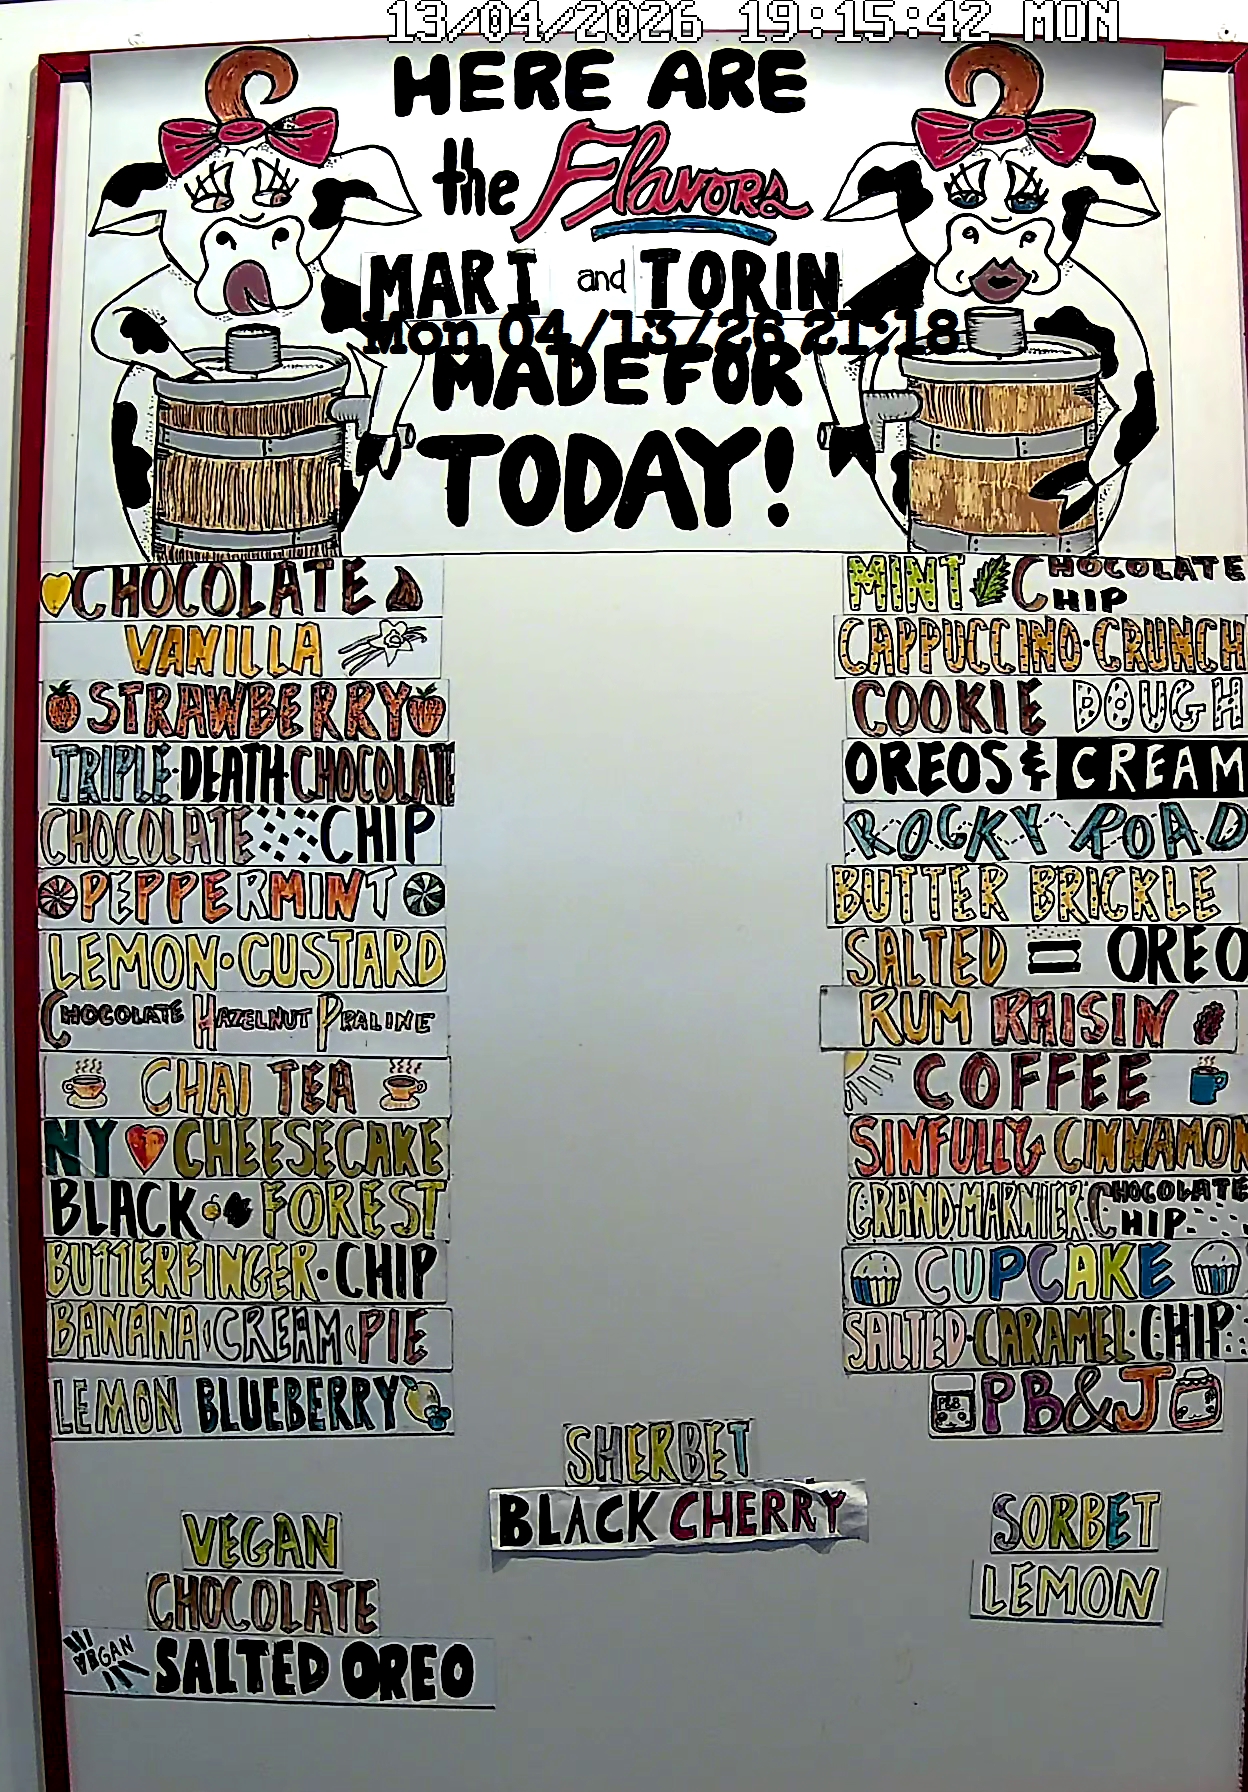 13/04/2026 19:15:42 MON
HERE ARE
the Flavors
MARI and TORIN
Mon 04/13/26 21:18
MADE FOR
TODAY!
CHOCOLATE
VANILLA
STRAWBERRY
TRIPLE·DEATH·CHOCOLATE
CHOCOLATE CHIP
PEPPERMINT
LEMON·CUSTARD
CHOCOLATE HAZELNUT PRALINE
CHAI TEA
NY CHEESECAKE
BLACK FOREST
BUTTERFINGER·CHIP
BANANA·CREAM·PIE
LEMON BLUEBERRY
MINT CHOCOLATE CHIP
CAPPUCCINO·CRUNCH
COOKIE DOUGH
OREOS & CREAM
ROCKY ROAD
BUTTER BRICKLE
SALTED OREO
RUM RAISIN
COFFEE
SINFULLY CINNAMON
GRAND·MARNIER·CHOCOLATE CHIP
CUPCAKE
SALTED·CARAMEL·CHIP
PB&J
SHERBET
BLACK CHERRY
VEGAN
CHOCOLATE
VEGAN SALTED OREO
SORBET
LEMON